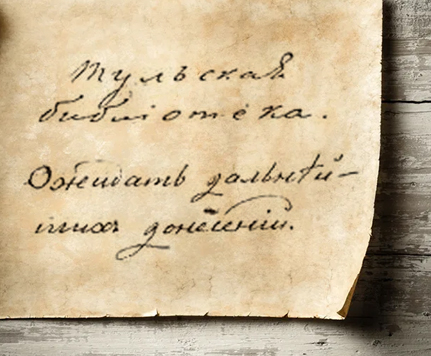 Тульская
библіотека.
Ожидать дальнѣй-
шихъ донесеній.